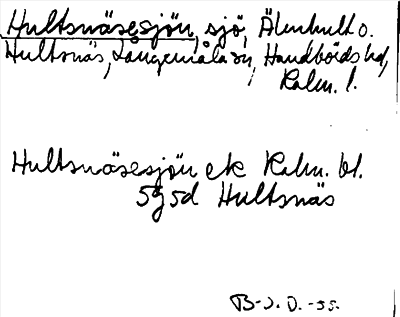 Hultsnäsesjön, sjö, Älmhult o.
Hultsnäs, Långemåla sn, Handbörds hd,
Kalm. l.
Hultsnäsesjön ek Kalm. bl.
5g5d Hultsnäs
B-J. D. -55.